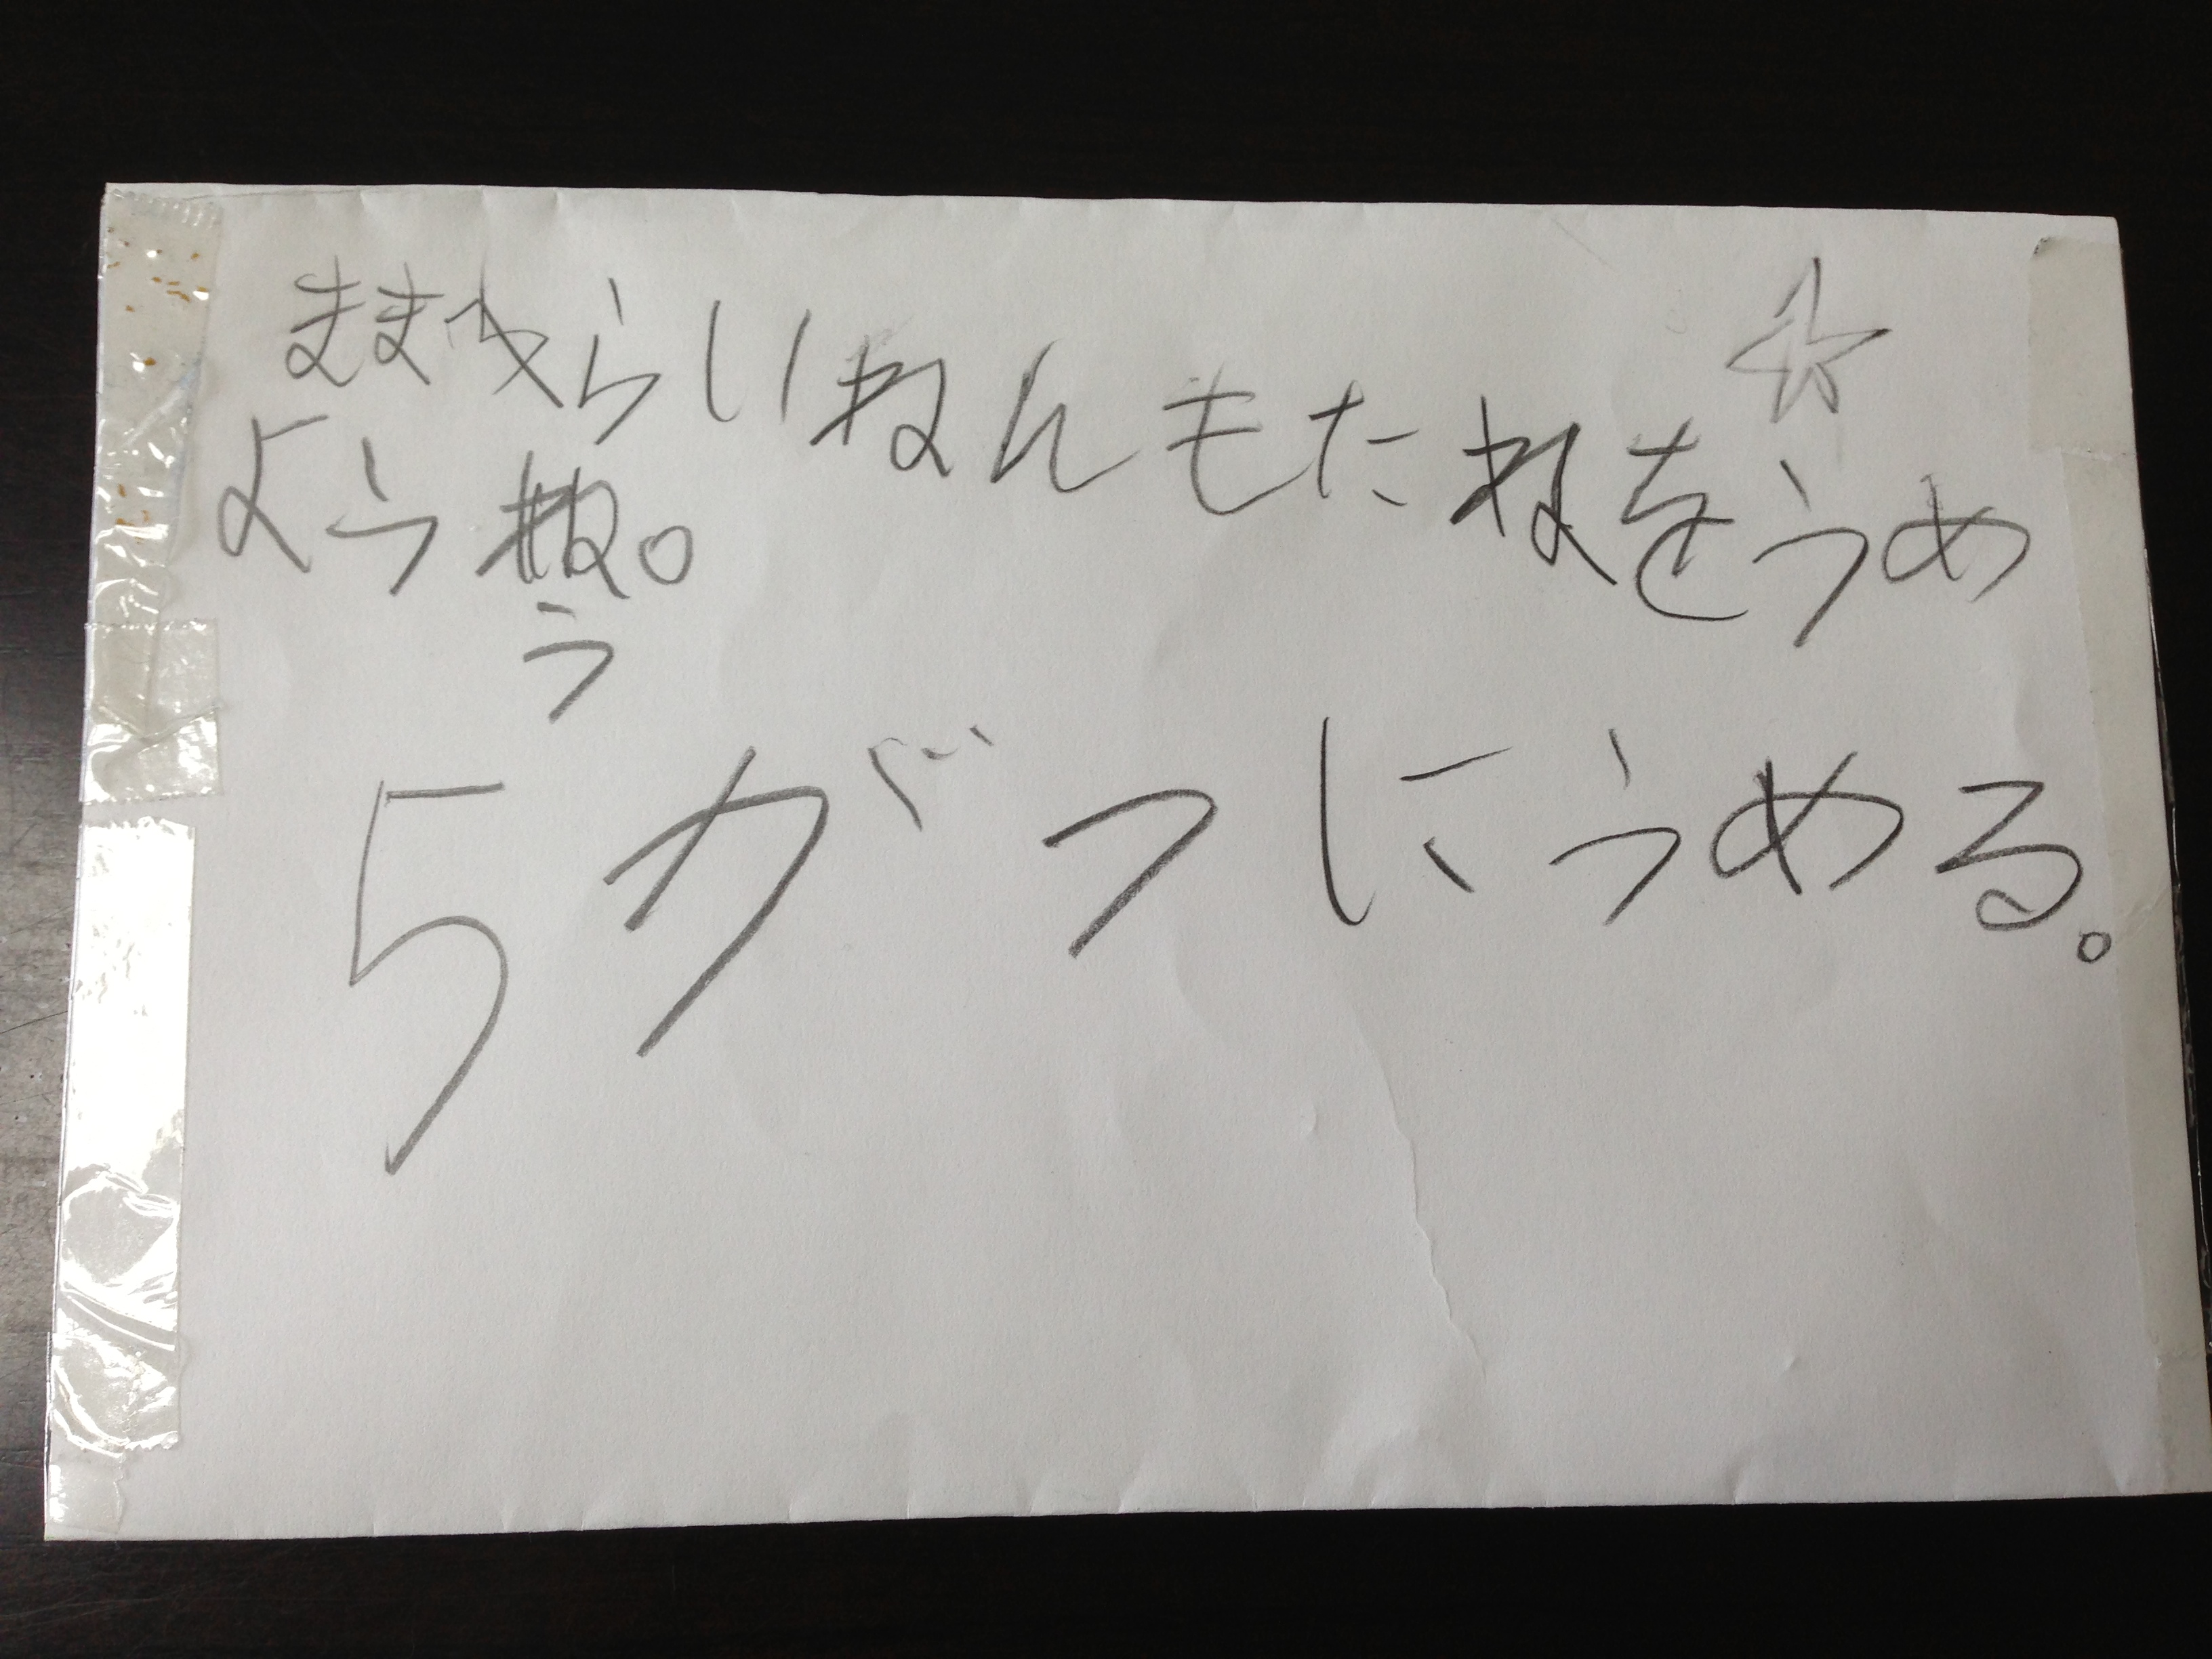 ままへらいねんもたねをうめ
ようね。
う
5がつにうめる。